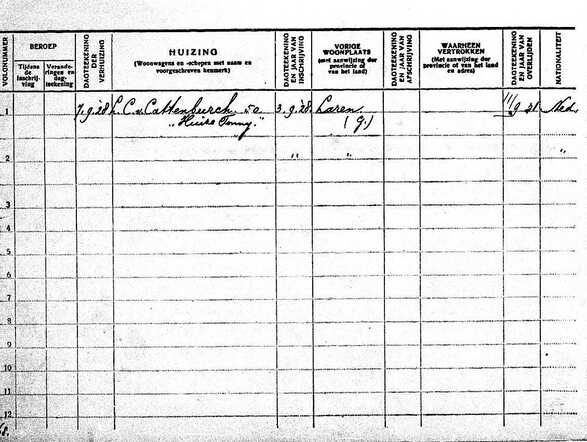 VOLGNUMMER
BEROEP
Tijdens de inschrijving
Veranderingen en dagteekening
DAGTEEKENING DER VERHUIZING
HUIZING
(Woonwagens en -schepen met naam en voorgeschreven kenmerk)
DAGTEEKENING EN JAAR VAN INSCHRIJVING
VORIGE WOONPLAATS
(met aanwijzing der provincie of van het land)
DAGTEEKENING EN JAAR VAN AFSCHRIJVING
WAARHEEN VERTROKKEN
(Met aanwijzing der provincie of van het land en adres)
DAGTEEKENING EN JAAR VAN OVERLIJDEN
NATIONALITEIT
1 7.9.'28 L. C. v. Cattenburch 50 3.9.'28 Laren 11/9 31 Ned.
"Huize Tonny" (G.)
2 " " "
3
4
5
6
7
8
9
10
11
12